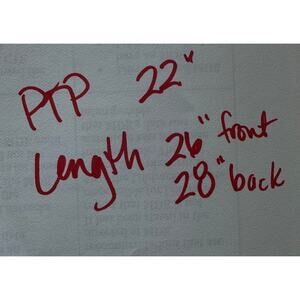 PTP 22"
Length 26" front
28" back